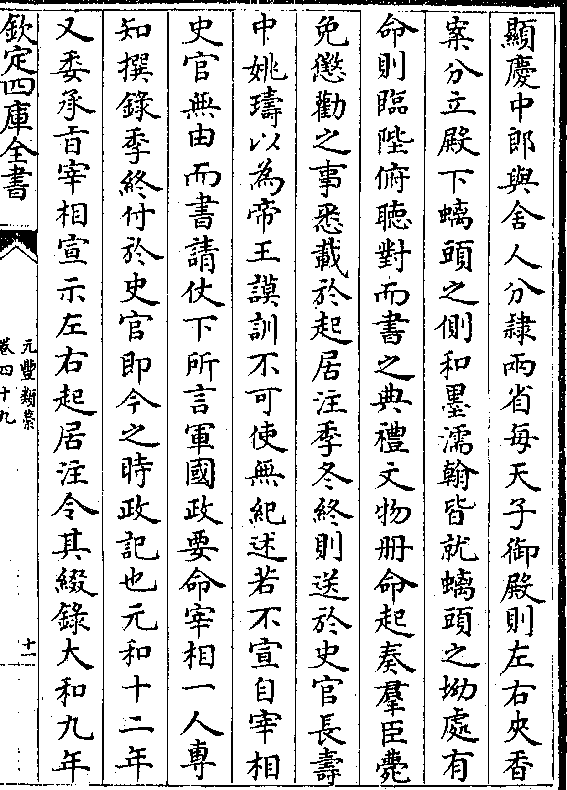 顯慶中郎與舍人分隷兩省每天子御殿則左右夾香
案分立殿下螭頭之側和墨濡翰皆就螭頭之坳處有
命則臨陛俯聽對而書之典禮文物册命起奏羣臣薨
免懲勸之事悉載於起居注季冬終則送於史官長壽
中姚璹以為帝王謨訓不可使無紀述若不宣自宰相
史官無由而書請仗下所言軍國政要命宰相一人專
知撰錄季終付於史官即今之時政記也元和十二年
又委承旨宰相宣示左右起居注令其綴錄大和九年
欽定四庫全書
元豐類藁
卷四十九
十一